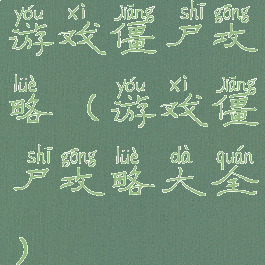 yóu xì jiāng shī gōng
游戏僵尸攻
lüè yóu xì jiāng
略（游戏僵
shī gōng lüè dà quán
尸攻略大全
）